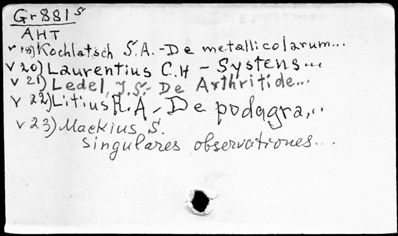 Gr881s
AHT
v 19) Kochlatsch S.A. - De metallicolarum...
v 20) Laurentius C.H - Systens...
v 21) Ledel, J.S. - De Arthritide...
v 22) Litius R.A - De podagra,..
v 23) Mackius, S.
singulares observationes...